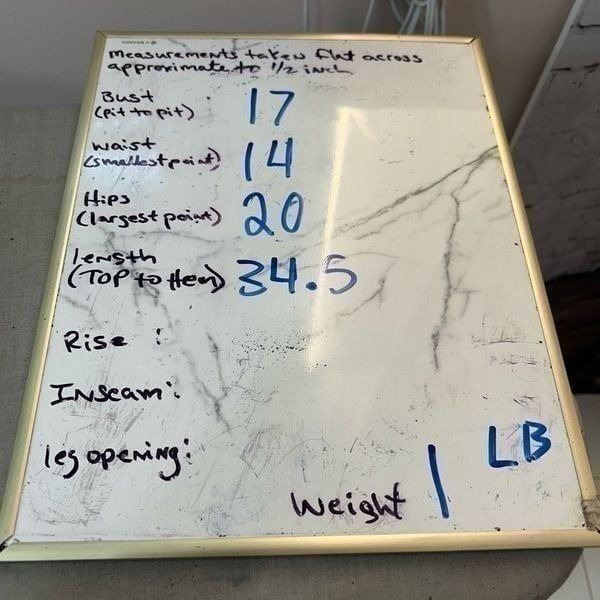 measurements taken flat across
approximate to 1/2 inch
Bust 17
(pit to pit)
waist 14
(smallest point)
Hips 20
(largest point)
length 34.5
(TOP to Hem)
Rise :
Inseam:
leg opening:
Weight 1 LB